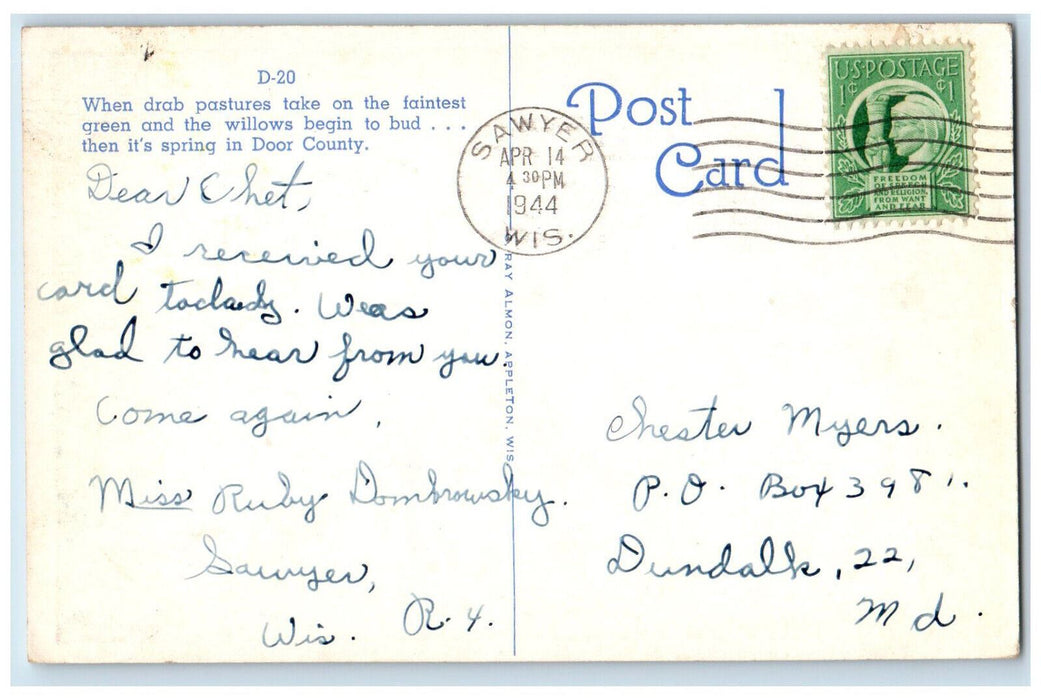 D-20
When drab pastures take on the faintest
green and the willows begin to bud . . .
then it's spring in Door County.
Dear Chet,
I received your
card today. Was
glad to hear from you.
Come again.
Miss Ruby Dombrowsky.
Sawyer,
Wis. R. 4.
RAY ALMON, APPLETON, WIS.
SAWYER
APR 14
4 30 PM
1944
WIS.
Post
Card
U.S. POSTAGE
1¢ ¢1
FREEDOM
OF SPEECH
AND RELIGION,
FROM WANT
AND FEAR
Chester Myers.
P.O. Box 3981.
Dundalk, 22,
Md.